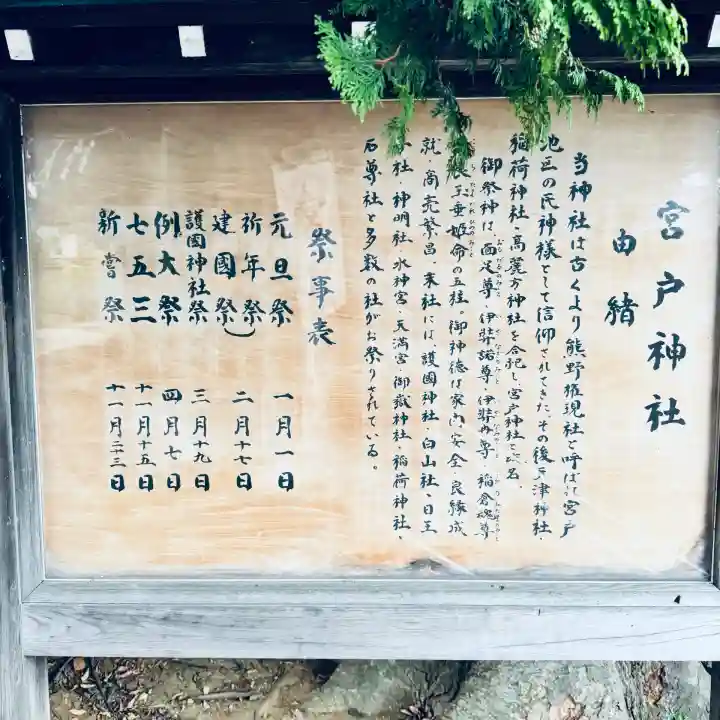 宮戸神社
由緒
当神社は古くより熊野権現社と呼ばれ宮戸
地区の氏神様として信仰されてきた。その後天津神社・
稲荷神社・高麗方神社を合祀し、宮戸神社と
御祭神は、面足尊・伊弉諾尊・伊弉冉尊・稲倉魂尊
垂姫命の五柱。御神徳は家内安全・良縁成
就・商売繁昌。末社には、護國神社・白山社・日王
社・神明社・水神宮・天満宮・御嶽神社・稲荷神社・
石尊社と多数の社がお祭りされている。
祭事表
元旦祭 一月一日
祈年祭
建國祭 二月十七日
護國神社祭 三月十九日
例大祭 四月七日
七五三 十一月十五日
新嘗祭 十一月二十三日